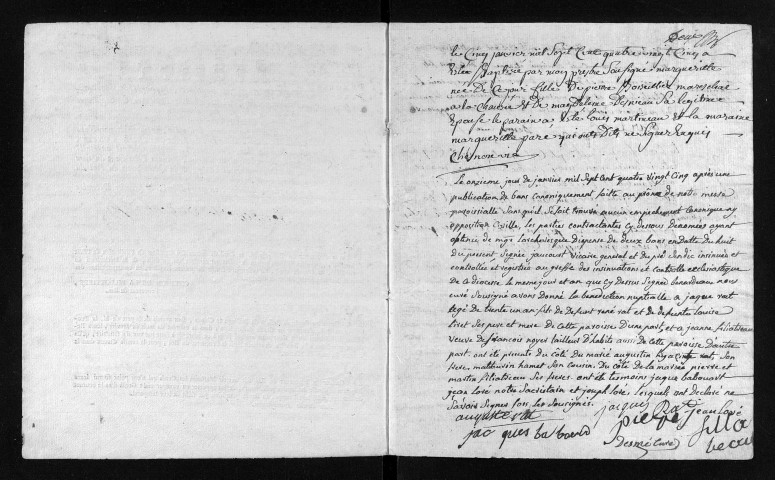 Deux
le Cinq janvier mil Sept Cent quatre vingt Cinq a
Eté Baptisée par moy prestre Soussigné margueritte
née De Ce jour fille De pierre Boisseliés mareschal
a la Chambre et De magdelene Desnieau Sa legitime
Epouse le parain a Eté louis martineau Et la maraine
margueritte paré qui ont Dits ne Signer Enquis
Chenonevia
Le onzieme jour de janvier mil Sept Cent quatre vingt Cinq après une
publication de bans canoniquement faitte au prône de notre messe
paroissialle Sans qu'il Se Soit trouvé aucun empechement Canonique ny
opposition Civille, les parties contractantes Cy dessous Denomées ayant
obtenu de mgr Larchevesque Dispense de deux bans en datte du huit
du present Signée jaucourt Vicaire general et du pié insinuée et
controllée et registrée au greffe des insinuations et controlle ecclesiastique
de Ce diocesse le mesme jour et an que Cy Dessus Signée benardeau nous
curé Sousigné avons Donné la benediction nuptialle a jaque rat
agé de trente un an fils de Defunt rené rat et de defunte louise
livet Ses pere et mere de Cette paroisse D'une part, et a jeanne filiatreau
Veuve de francois noyer tailleur D'habits aussi de Cette paroisse D'autre
part. ont été presents du Coté du marié augustin hyacinte rat, Son
frere. mathurin hamet Son cousin. Du Coté de la mariée pierre et
martin filiatreau Ses freres. ont été temoins jaque babouard
jean loré notre Sacristain et joseph loré, Lesquels ont déclaré ne
Savoir Signer fors les Sousignés.
auguste rat jacques Rat jean loré
jac ques babouard pierre filla
Desmé Curé beau